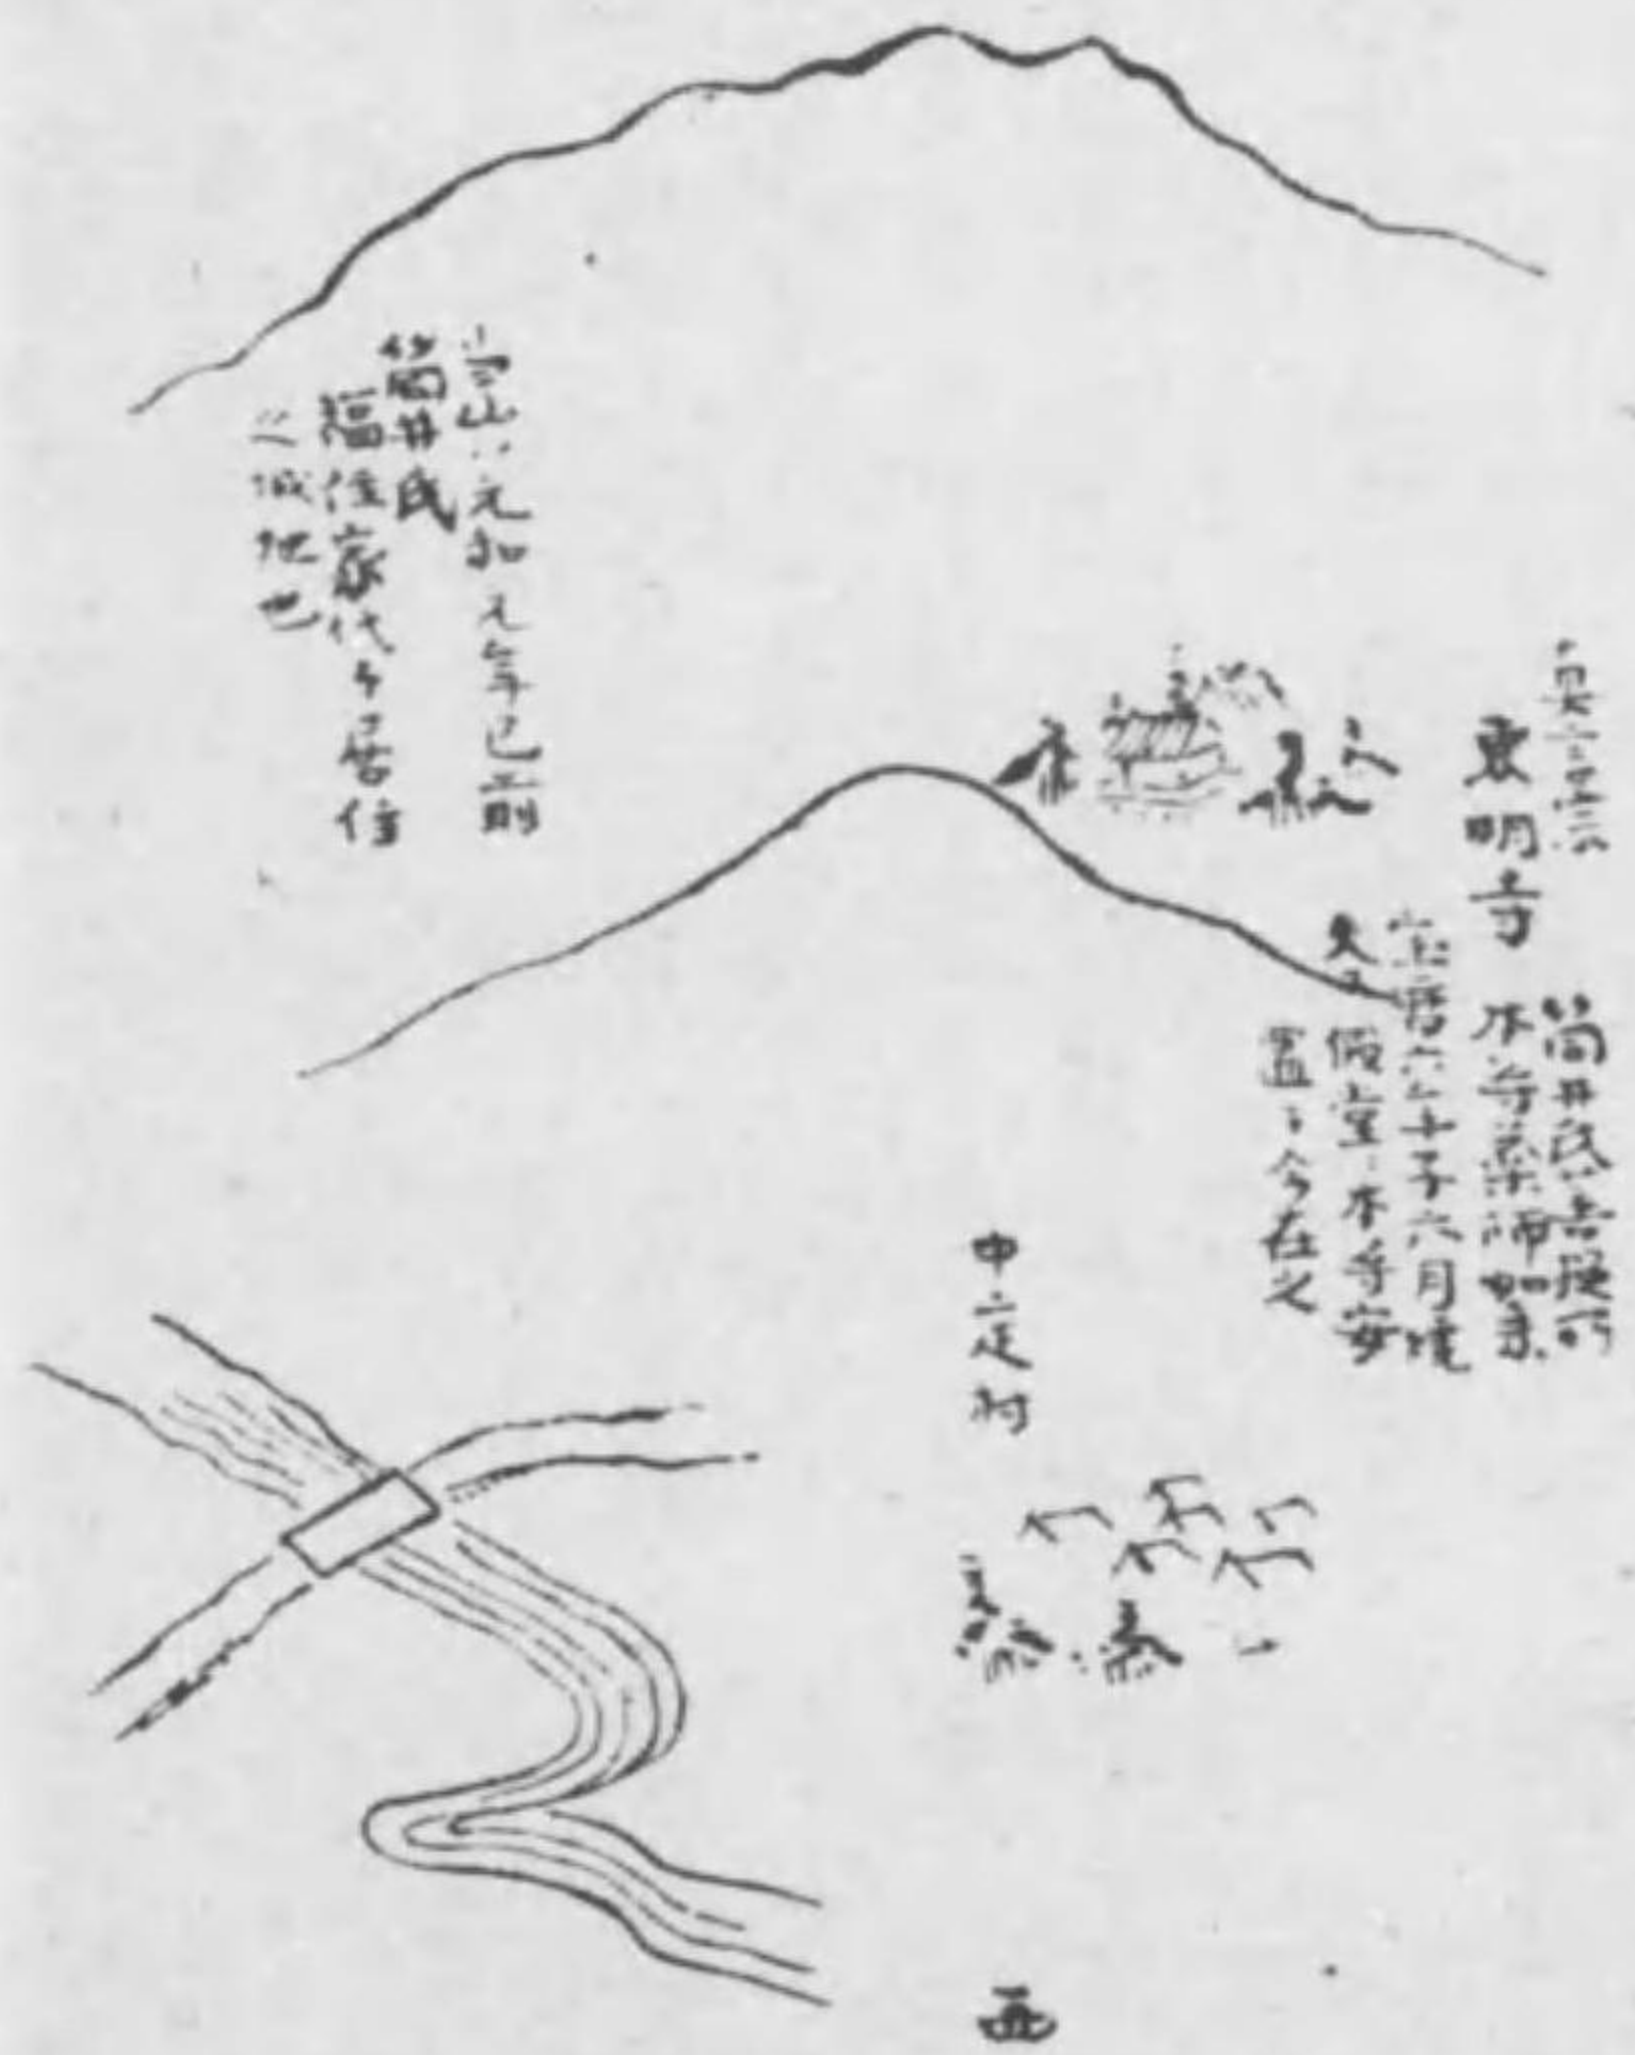 真言宗
東明寺
筒井氏古
本尊薬師如来
宝暦六年子六月焼
失
假堂ニ本尊安
置シ今在之
当山ハ元和元年已前
筒井氏
福住家代々居住
之城地也
中定村
西